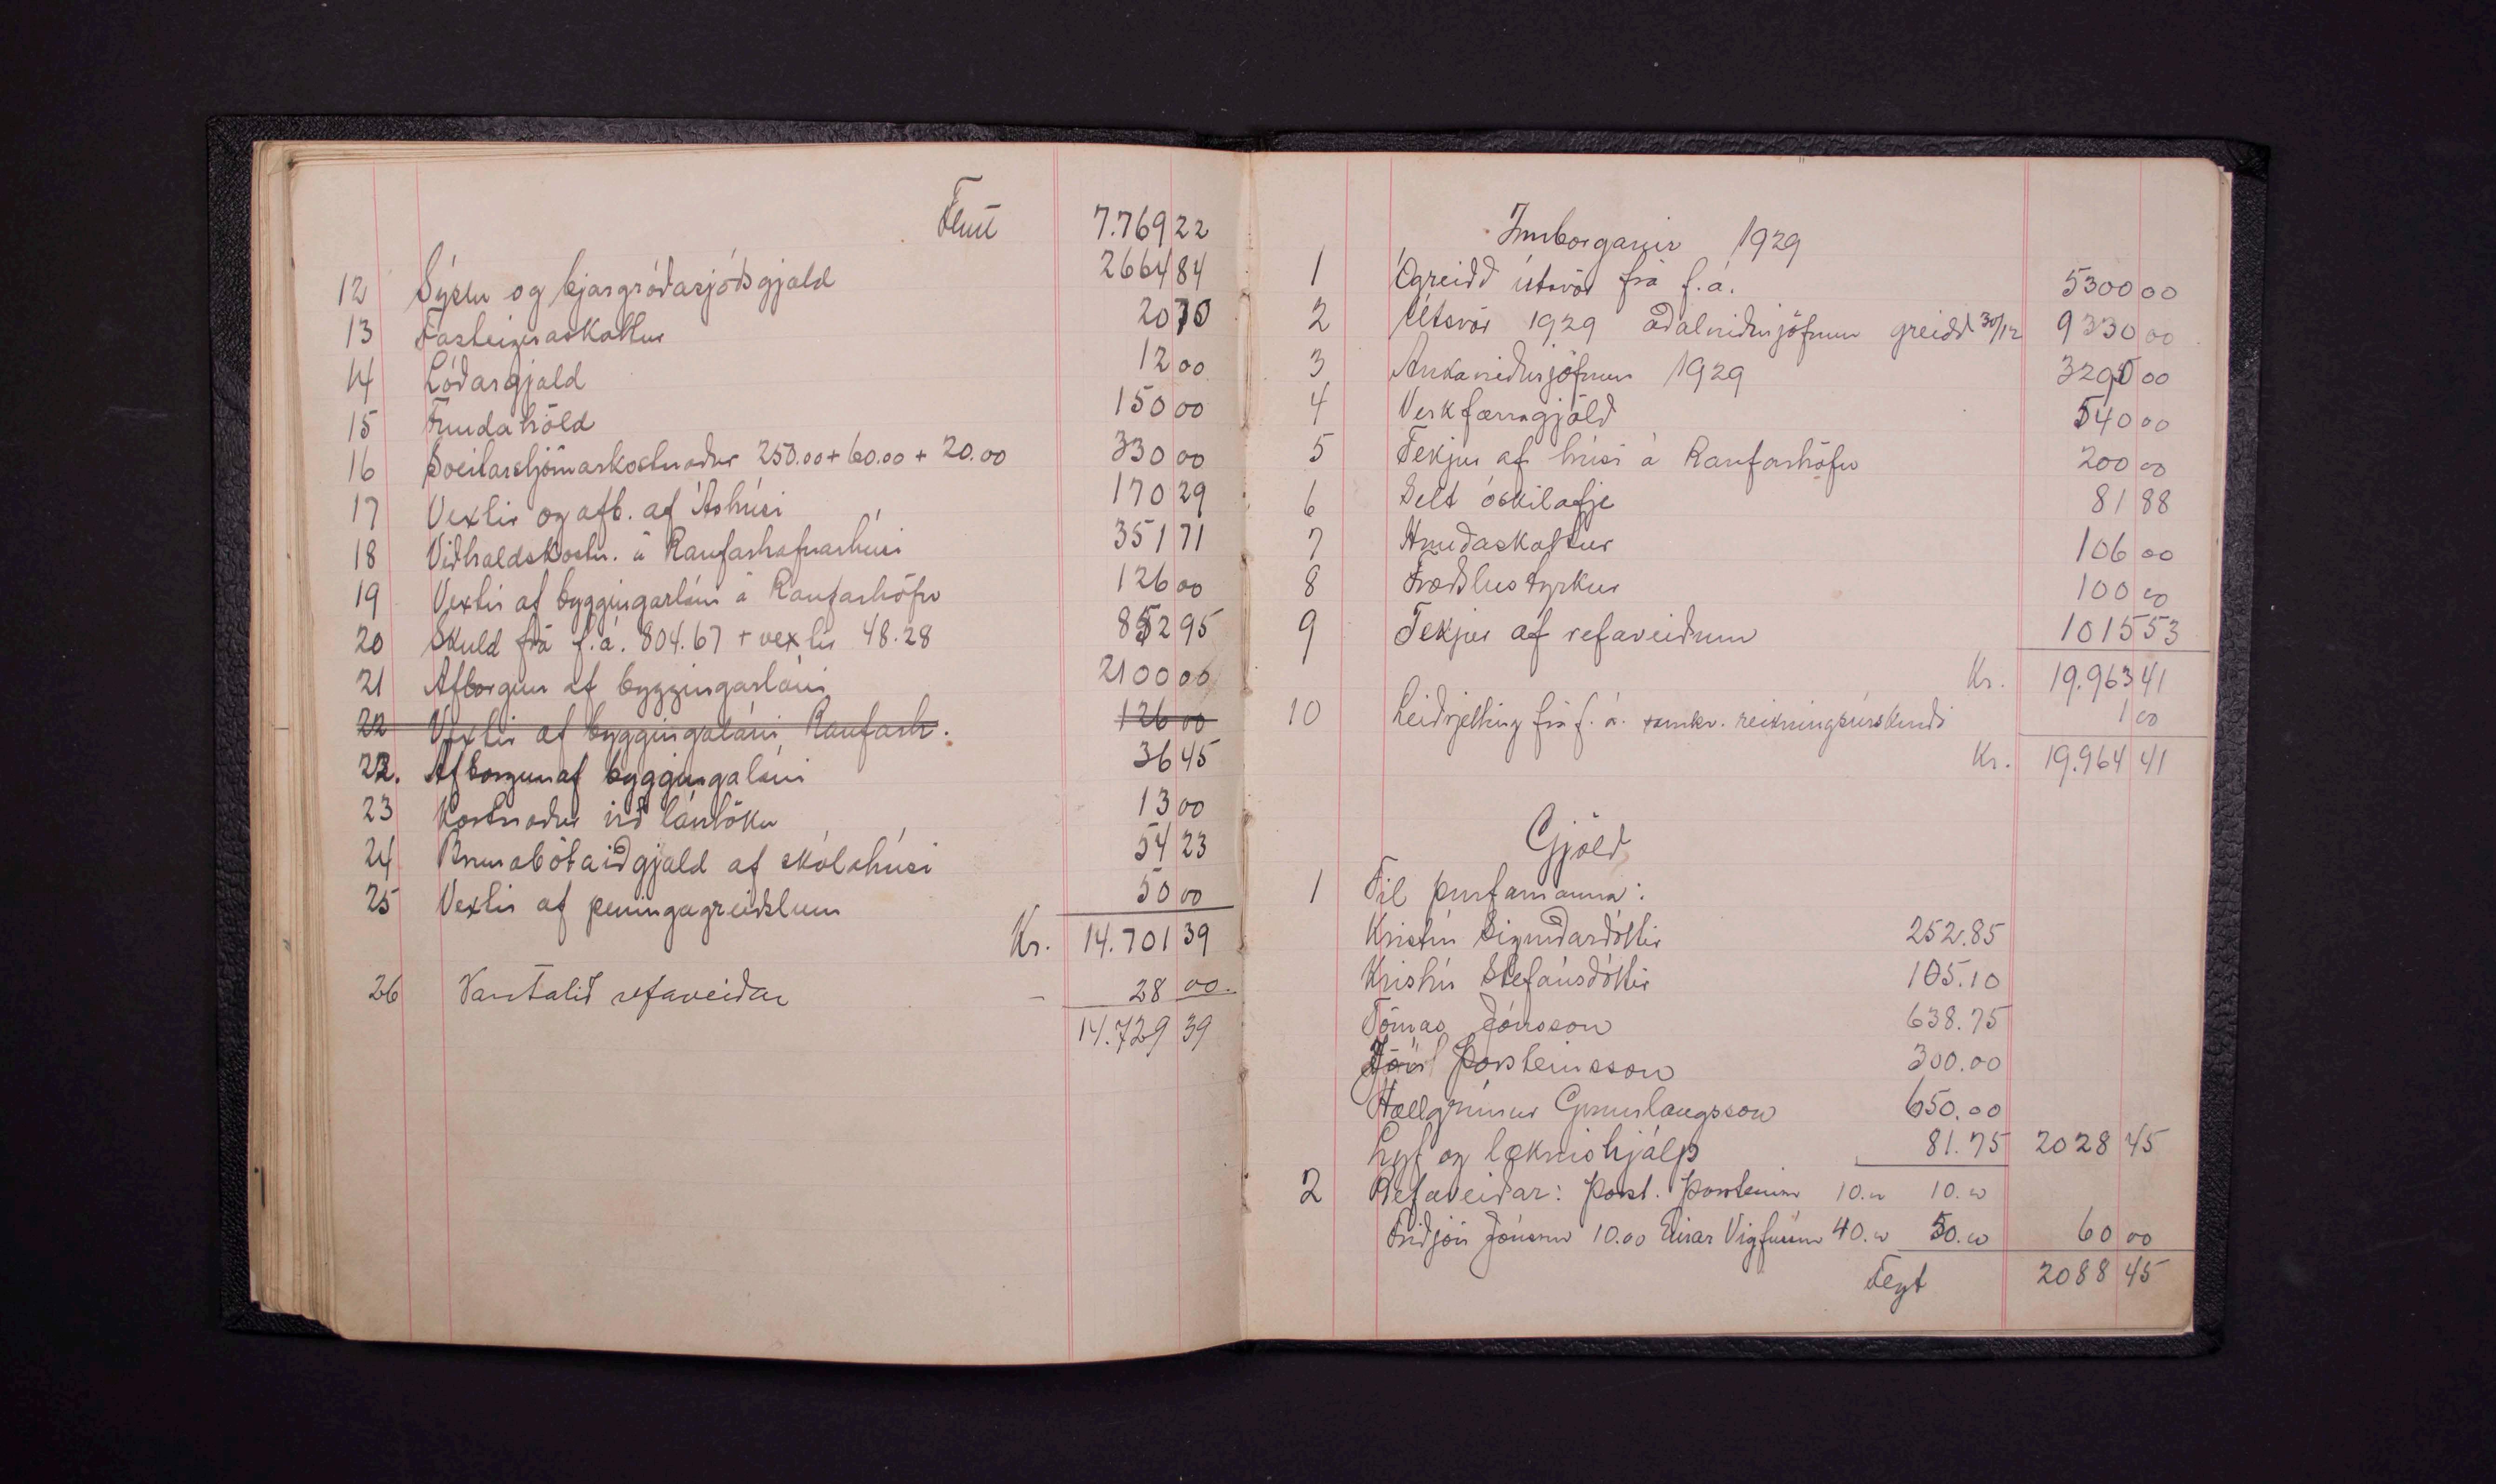 Flutt 7.769 22
12 Sýslu og bjargráðasjóðsgjald 2664 84
13 Fasteignaskattur 20 70
14 Lóðargjald 12 00
15 Fundahöld 150 00
16 Sveitarstjórnarkostnaður 250.00 + 60.00 + 20.00 330 00
17 Vextir og afb. af Áshúsi 170 29
18 Viðhaldskostn. á Raufarhafnarhúsi 351 71
19 Vextir af byggingarláni á Raufarhöfn 126 00
20 Skuld frá f.á. 804.67 + vextir 48.28 852 95
21 Afborgun af byggingarláni 2100 00
22 Vextir af byggingaláni Raufarh. 126 00
22. Afborgun af byggingaláni 36 45
23 Kostnaður við lántöku 13 00
24 Brunabótaiðgjald af skólahúsi 54 23
25 Vextir af peningagreiðslum 50 00
Kr. 14.701 39
26 Vantalið refaveiðar – 28 00.
14.729 39
Innborganir 1929
1 Ógreidd útsvör frá f.á. 5300 00
2 Útsvör 1929 aðalniðurjöfnun greidd 30/12 9330 00
3 Aukaniðurjöfnun 1929 3290 00
4 Verkfærragjöld 540 00
5 Tekjur af húsi á Raufarhöfn 200 00
6 Selt óskilafje 81 88
7 Hundaskattur 106 00
8 Fræðslustyrkur 100 00
9 Tekjur af refaveiðum 1015 53
Kr. 19.963 41
10 Leiðrjetting frá f. á. samkv. reikningsúrskurði 1 00
Kr. 19.964 41
Gjöld
1 Til þurfamanna:
Kristín Sigurðardóttir 252.85
Kristín Stefánsdóttir 105.10
Tómas Jónsson 638.75
Þorsteinsson 300.00
Hallgrímur Gunnlaugsson 650.00
Lyf og læknishjálp 81.75 2028 45
2 Refaveiðar: Þorst. Þorsteinss 10.00 10.00
Friðjón Jónsson 10.00 Einar Vigfússon 40.00 50.00 60 00
Flyt 2088 45